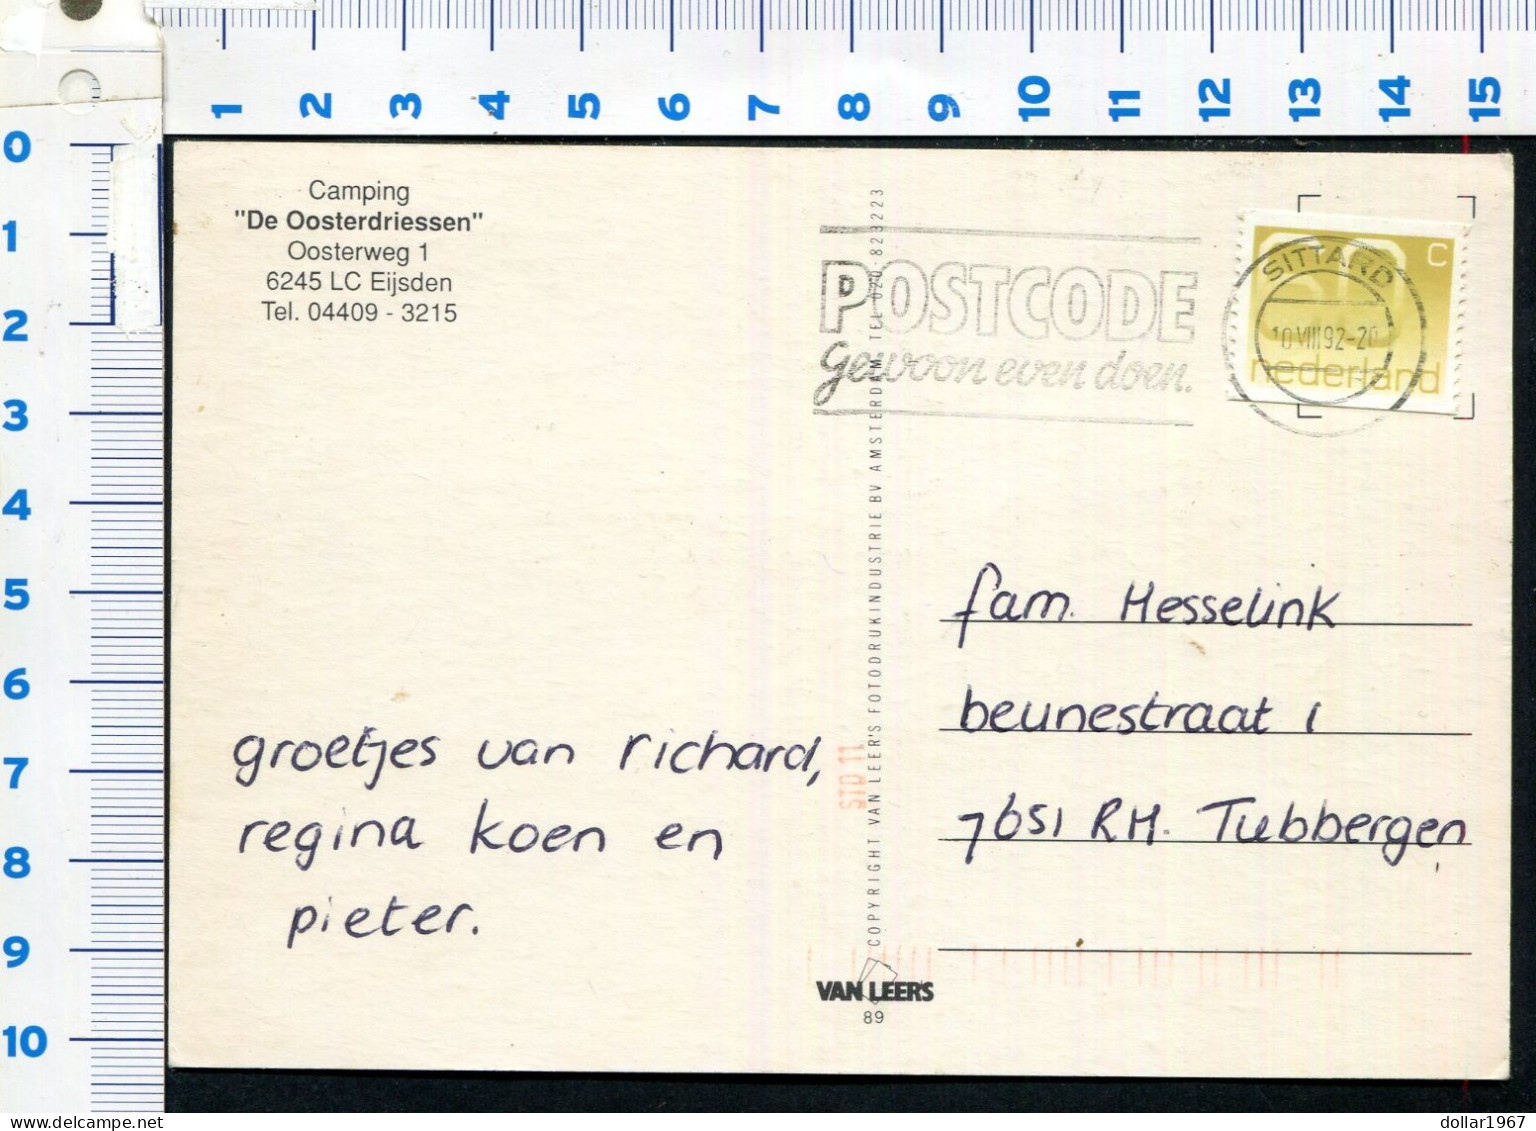 1 2 3 4 5 6 7 8 9 10 11 12 13 14 15
0
1
2
3
4
5
6
7
8
9
10
Camping
"De Oosterdriessen"
Oosterweg 1
6245 LC Eijsden
Tel. 04409 - 3215
POSTCODE
Gewoon even doen.
SITTARD
10 VIII 92-20
c
60
nederland
COPYRIGHT VAN LEER'S FOTODRUKINDUSTRIE BV AMSTERDAM TEL 020-823223
groetjes van richard,
regina koen en
pieter.
STD 11
fam. Hesselink
beunestraat 1
7651 RH. Tubbergen
VAN LEER'S
89
dollar1967